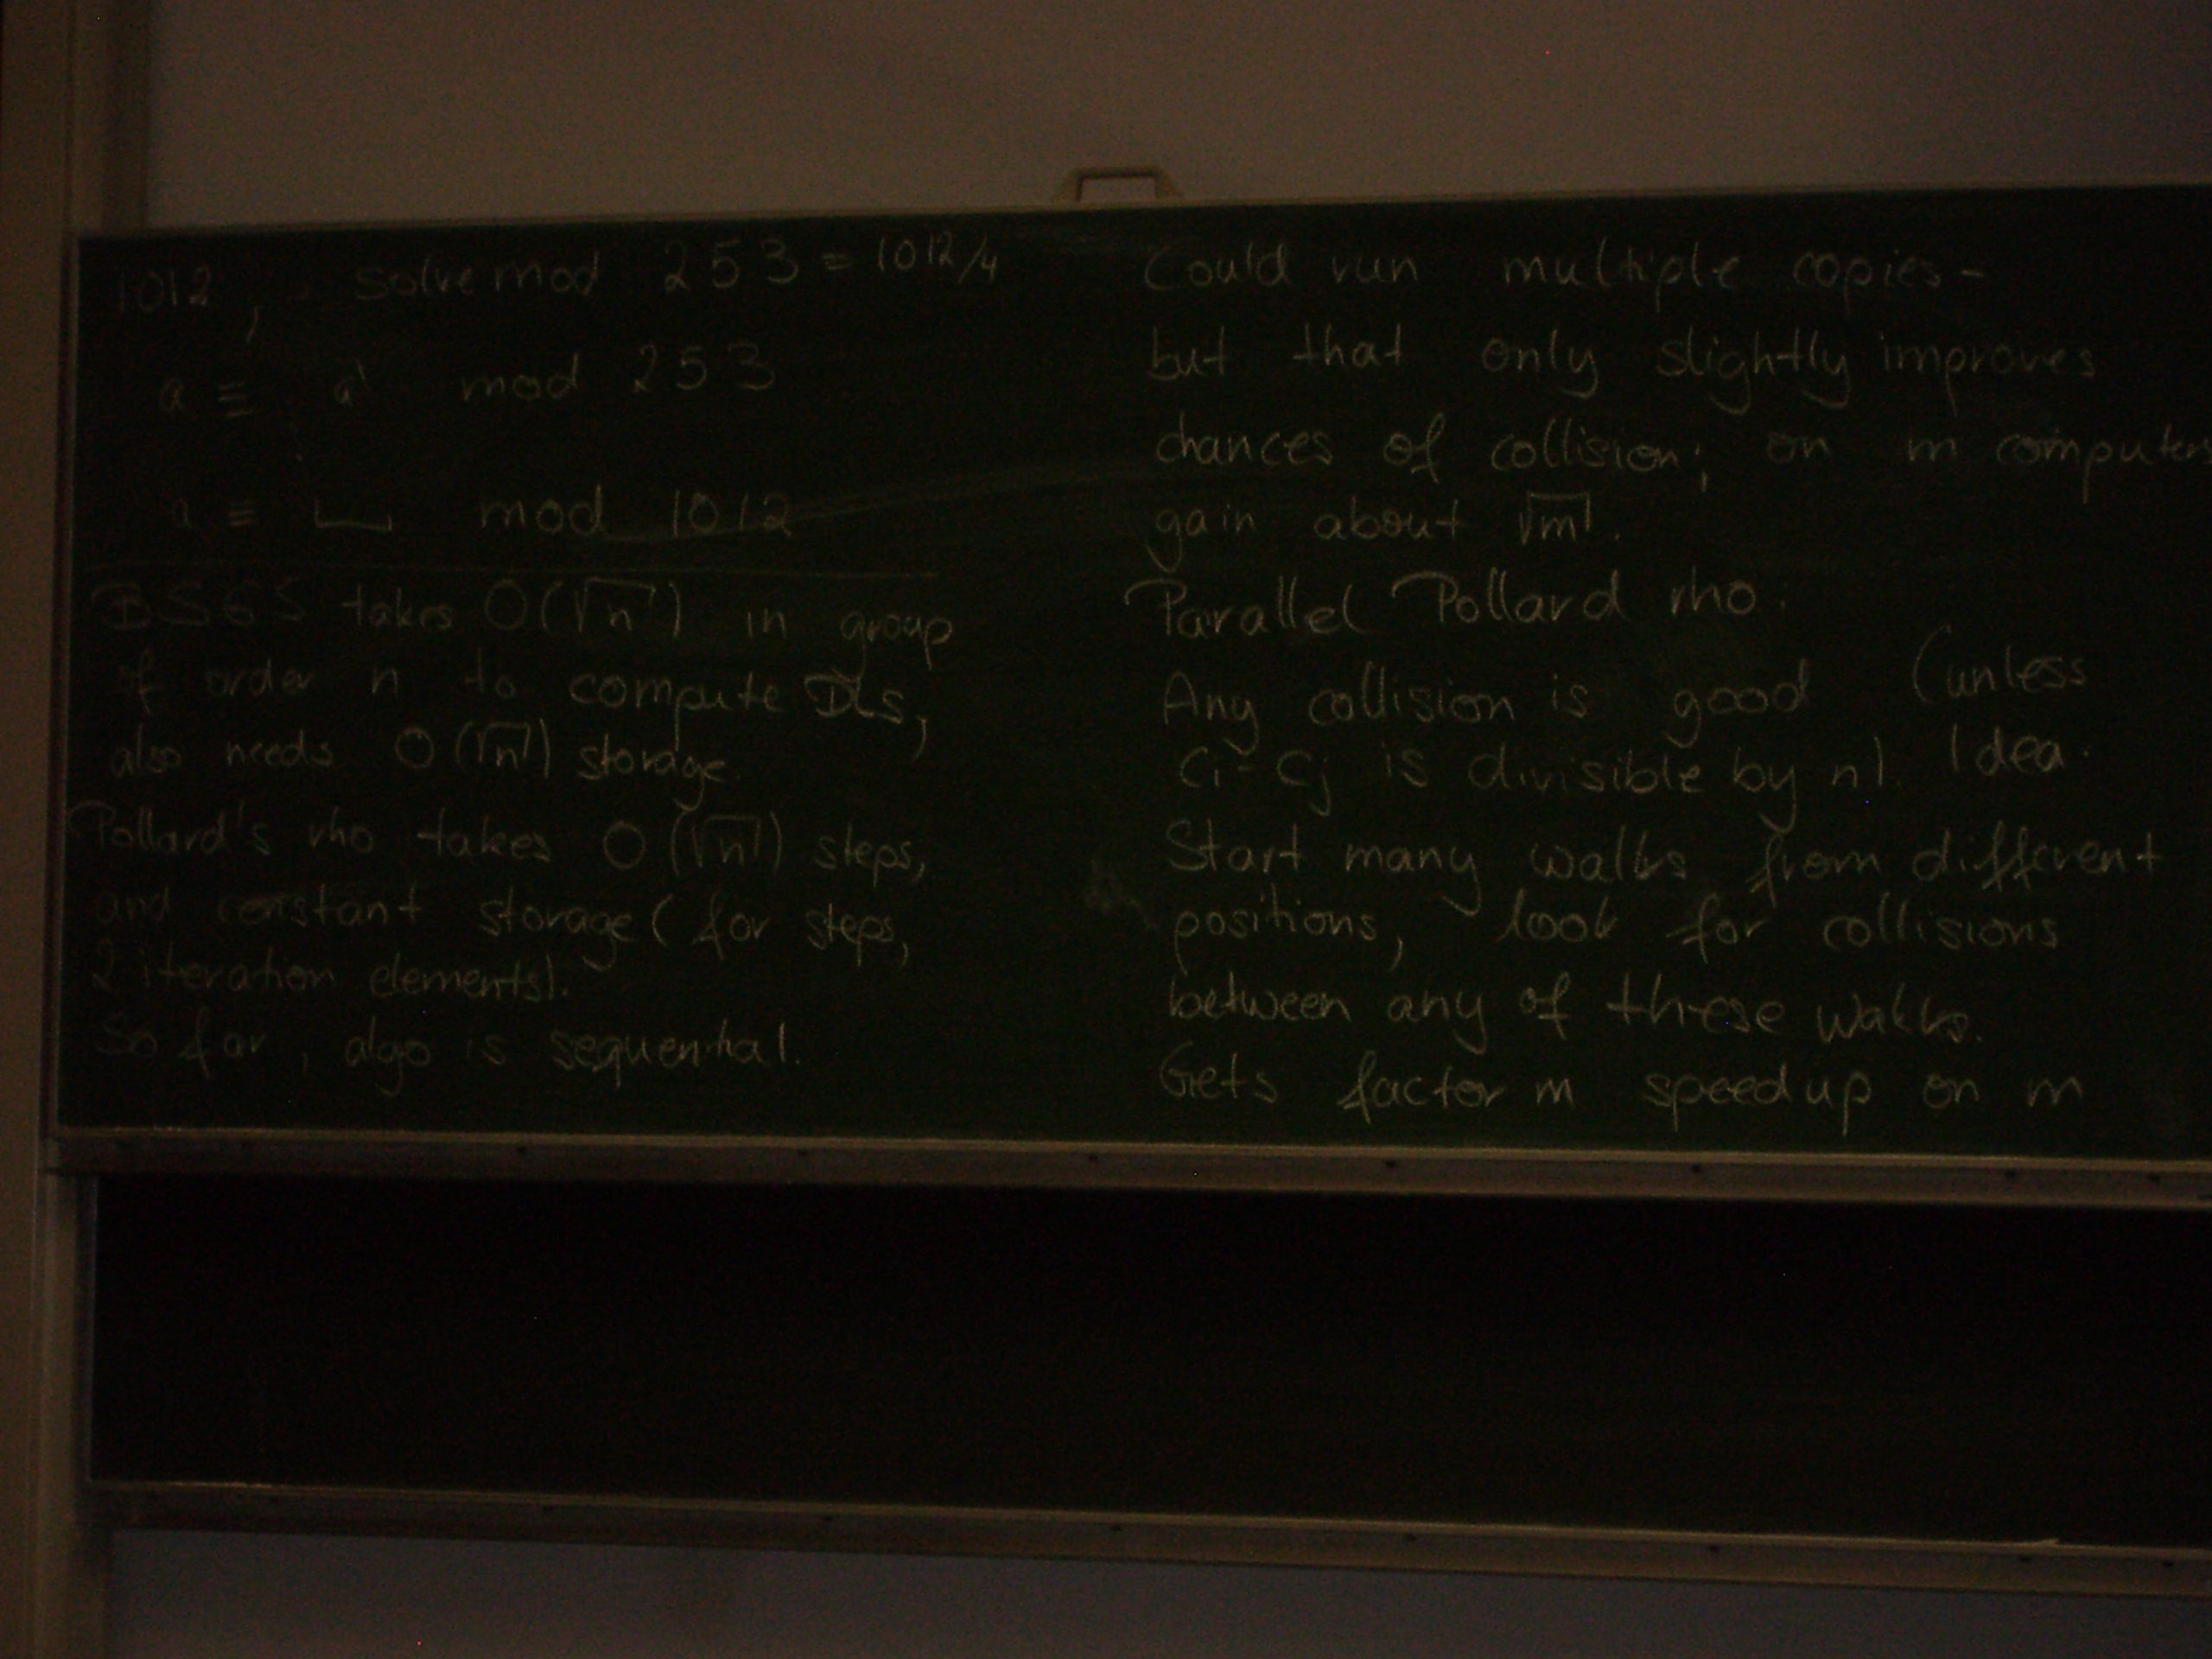 1012, solve mod 253 = 1012/4
a ≡ a' mod 253
a ≡ ⌴ mod 1012
BSGS takes O(√n) in group
of order n to compute DLs,
also needs O(√n) storage.
Pollard's rho takes O(√n) steps,
and constant storage (for steps,
2 iteration elements).
So far, algo is sequential.
Could run multiple copies -
but that only slightly improves
chances of collision; on m computers
gain about √m.
Parallel Pollard rho:
Any collision is good (unless
ci - cj is divisible by n). Idea:
Start many walks from different
positions, look for collisions
between any of these walks.
Gets factor m speedup on m